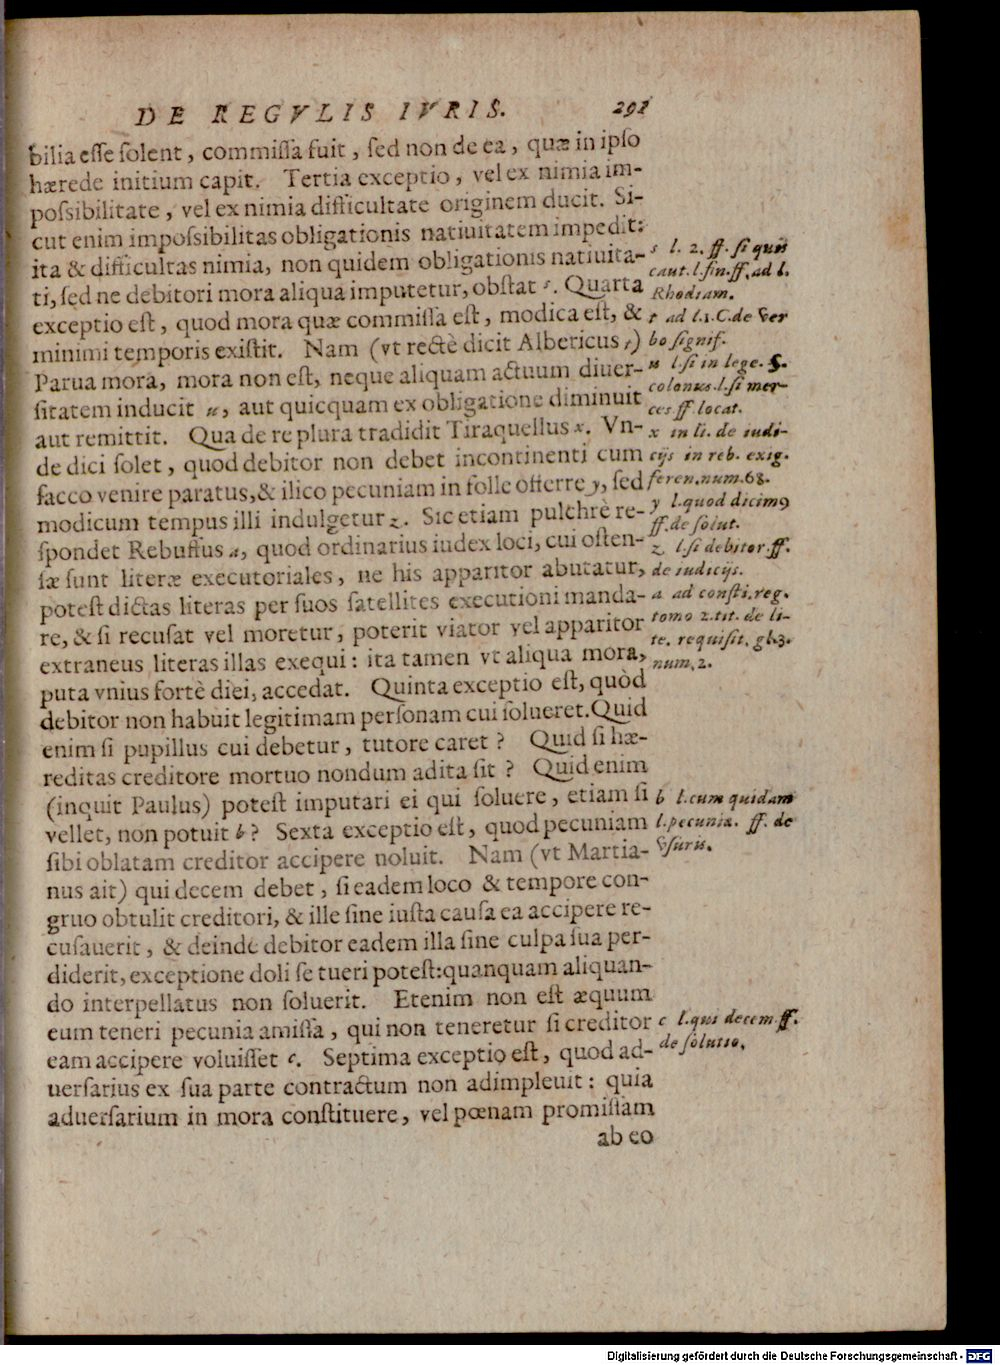 DE REGVLIS IVRIS. 291
bilia esse solent, commissa fuit, sed non de ea, quæ in ipso
hærede initium capit. Tertia exceptio, vel ex nimia im-
possibilitate, vel ex nimia difficultate originem ducit. Si-
cut enim impossibilitas obligationis natiuitatem impedit:
ita & difficultas nimia, non quidem obligationis natiuita-
ti, sed ne debitori mora aliqua imputetur, obstat s. Quarta
exceptio est, quod mora quæ commissa est, modica est, &
minimi temporis existit. Nam (vt rectè dicit Albericus t)
Parua mora, mora non est, neque aliquam actuum diuer-
sitatem inducit u, aut quicquam ex obligatione diminuit
aut remittit. Qua de re plura tradidit Tiraquellus x. Vn-
de dici solet, quod debitor non debet incontinenti cum
sacco venire paratus, & ilico pecuniam in folle offerre y, sed
modicum tempus illi indulgetur z. Sic etiam pulchrè re-
spondet Rebuffus a, quod ordinarius iudex loci, cui osten-
sæ sunt literæ executoriales, ne his apparitor abutatur,
potest dictas literas per suos satellites executioni manda-
re, & si recusat vel moretur, poterit viator vel apparitor
extraneus literas illas exequi: ita tamen vt aliqua mora,
puta vnius fortè diei, accedat. Quinta exceptio est, quòd
debitor non habuit legitimam personam cui solueret. Quid
enim si pupillus cui debetur, tutore caret? Quid si hæ-
reditas creditore mortuo nondum adita sit? Quid enim
(inquit Paulus) potest imputari ei qui soluere, etiam si
vellet, non potuit b? Sexta exceptio est, quod pecuniam
sibi oblatam creditor accipere noluit. Nam (vt Martia-
nus ait) qui decem debet, si eadem loco & tempore con-
gruo obtulit creditori, & ille sine iusta causa ea accipere re-
cusauerit, & deinde debitor eadem illa sine culpa sua per-
diderit, exceptione doli se tueri potest: quanquam aliquan-
do interpellatus non soluerit. Etenim non est æquum
eum teneri pecunia amissa, qui non teneretur si creditor
eam accipere voluisset c. Septima exceptio est, quod ad-
uersarius ex sua parte contractum non adimpleuit: quia
aduersarium in mora constituere, vel pœnam promissam
ab eo
s l. 2. ff. si quis
caut. l. fin. ff. ad l.
Rhodiam.
t ad l. 1. C. de ver
bo signif.
u l. si in lege. §.
colonus. l. si mer-
ces ff locat.
x in li. de iudi-
cijs in reb. exig.
feren. num. 68.
y l. quod dicim9
ff. de solut.
z l. si debitor. ff.
de iudicijs.
a ad consti. reg.
tomo 2. tit. de li-
te. requisit. gl. 3.
num. 2.
b l. cum quidam
l. pecuniæ. ff. de
vsuris.
c l. qui decem. ff.
de solutio.
Digitalisierung gefördert durch die Deutsche Forschungsgemeinschaft - DFG